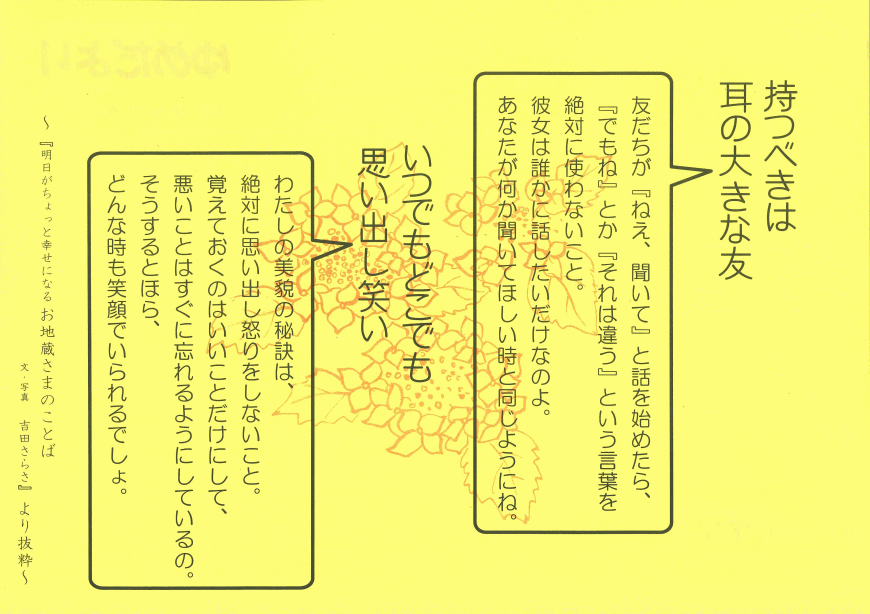 持つべきは
耳の大きな友
友だちが『ねえ、聞いて』と話を始めたら、
『でもね』とか『それは違う』という言葉を
絶対に使わないこと。
彼女は誰かに話したいだけなのよ。
あなたが何か聞いてほしい時と同じようにね。
いつでもどこでも
思い出し笑い
わたしの美貌の秘訣は、
絶対に思い出し怒りをしないこと。
覚えておくのはいいことだけにして、
悪いことはすぐに忘れるようにしているの。
そうするとほら、
どんな時も笑顔でいられるでしょ。
～『明日がちょっと幸せになる お地蔵さまのことば
文・写真 吉田さらさ』より抜粋～